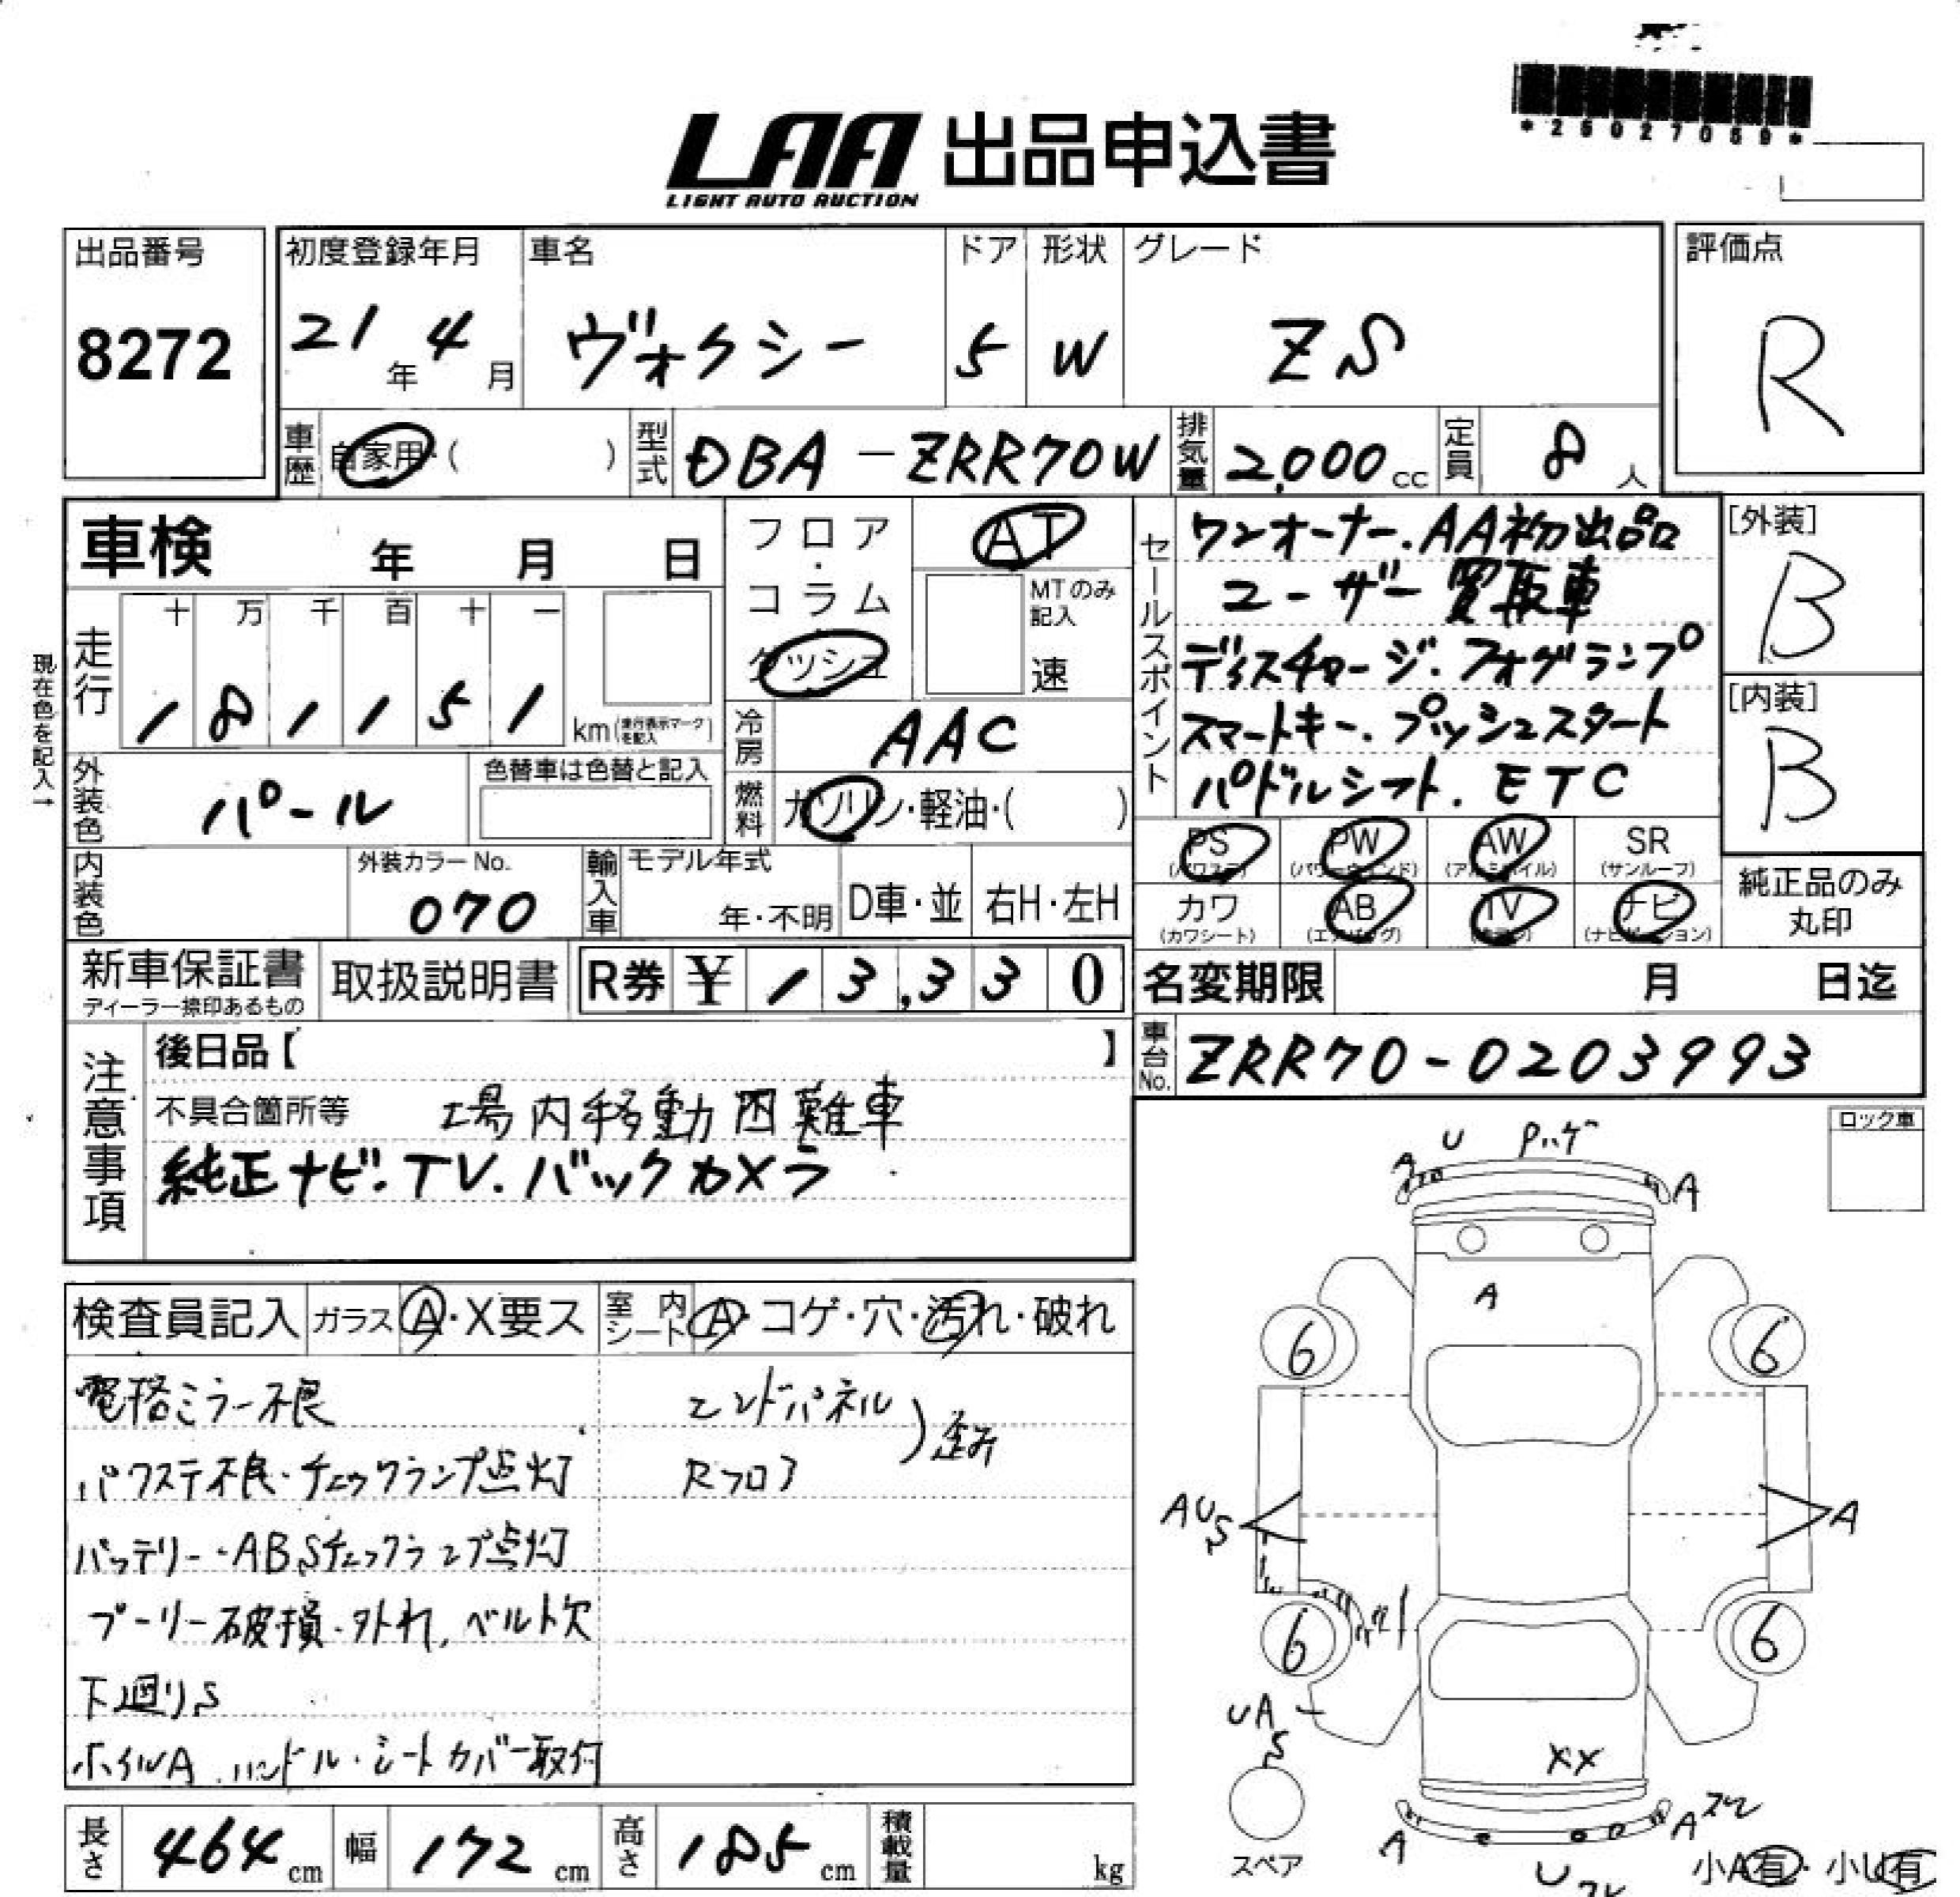 *25027069*
LAA 出品申込書
LIGHT AUTO AUCTION
出品番号
8272
初度登録年月
21年 4月
車名
ヴォクシー
ドア
5
形状
W
グレード
ZS
評価点
R
車歴 自家用・( )
型式 DBA-ZRR70W
排気量 2,000cc
定員 8人
車検 年 月 日
フロア・コラム ダッシュ
AT
MTのみ記入
速
セールスポイント
ワンオーナー.AA初出品
ユーザー買取車
ディスチャージ.フォグランプ
スマートキー.プッシュスタート
パドルシフト.ETC
[外装]
B
[内装]
B
現在色を記入→
走行
十 万 千 百 十 一
1 8 1 1 5 1 km(走行表示マークを記入)
冷房 AAC
外装色 パール
色替車は色替と記入
燃料 ガソリン・軽油・( )
内装色
外装カラーNo.
070
輸入車
モデル年式
年・不明
D車・並
右H・左H
PS (パワステ)
PW (パワーウィンド)
AW (アルミホイル)
SR (サンルーフ)
カワ (カワシート)
AB (エアバッグ)
TV (テレビ)
ナビ (ナビゲーション)
純正品のみ
丸印
新車保証書
ディーラー捺印あるもの
取扱説明書
R券 ¥ 1 3,3 3 0
名変期限 月 日迄
車台No. ZRR70-0203993
注意事項
後日品【 】
不具合箇所等 工場内移動困難車
純正ナビ.TV.バックカメラ
ロック車
検査員記入
ガラス A・X要ス
室内シート A・コゲ・穴・汚れ・破れ
電格ミラー不良
パワステ不良・チェックランプ点灯
バッテリー・ABSチェックランプ点灯
プーリー破損・外れ,ベルト欠
下廻りS
ホイルA.ハンドル・シートカバー取付
エンドパネル
Rフロア
)歪み
U Pハゲ
A A
A
6 6
AUS A
6 6
UAS
XX
スペア
A A
U
小A有・小U有
長さ 464cm
幅 172cm
高さ 185cm
積載量 kg